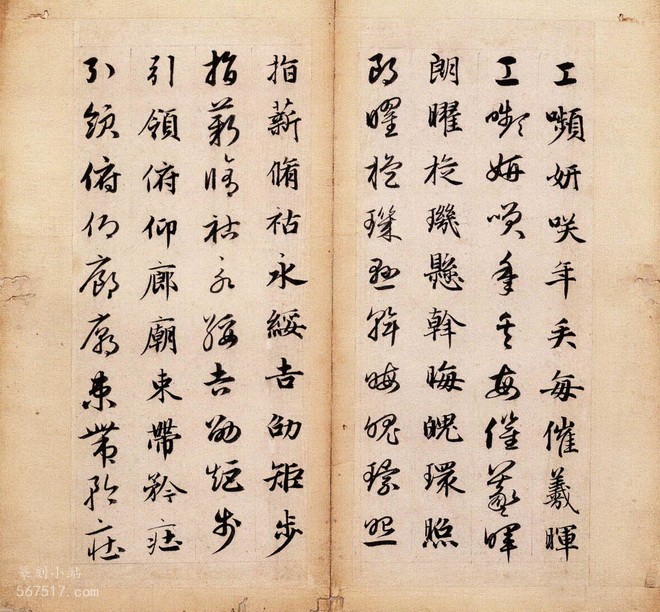 工嚬妍咲年矢每催羲暉
工嚬妍咲年矢每催羲暉
朗曜旋璣懸斡晦魄環照
朗曜旋璣懸斡晦魄環照
指薪脩祜永綏吉劭矩步
指薪脩祜永綏吉劭矩步
引領俯仰廊廟束帶矜莊
引領俯仰廊廟束帶矜莊
篆刻小站
567517.com